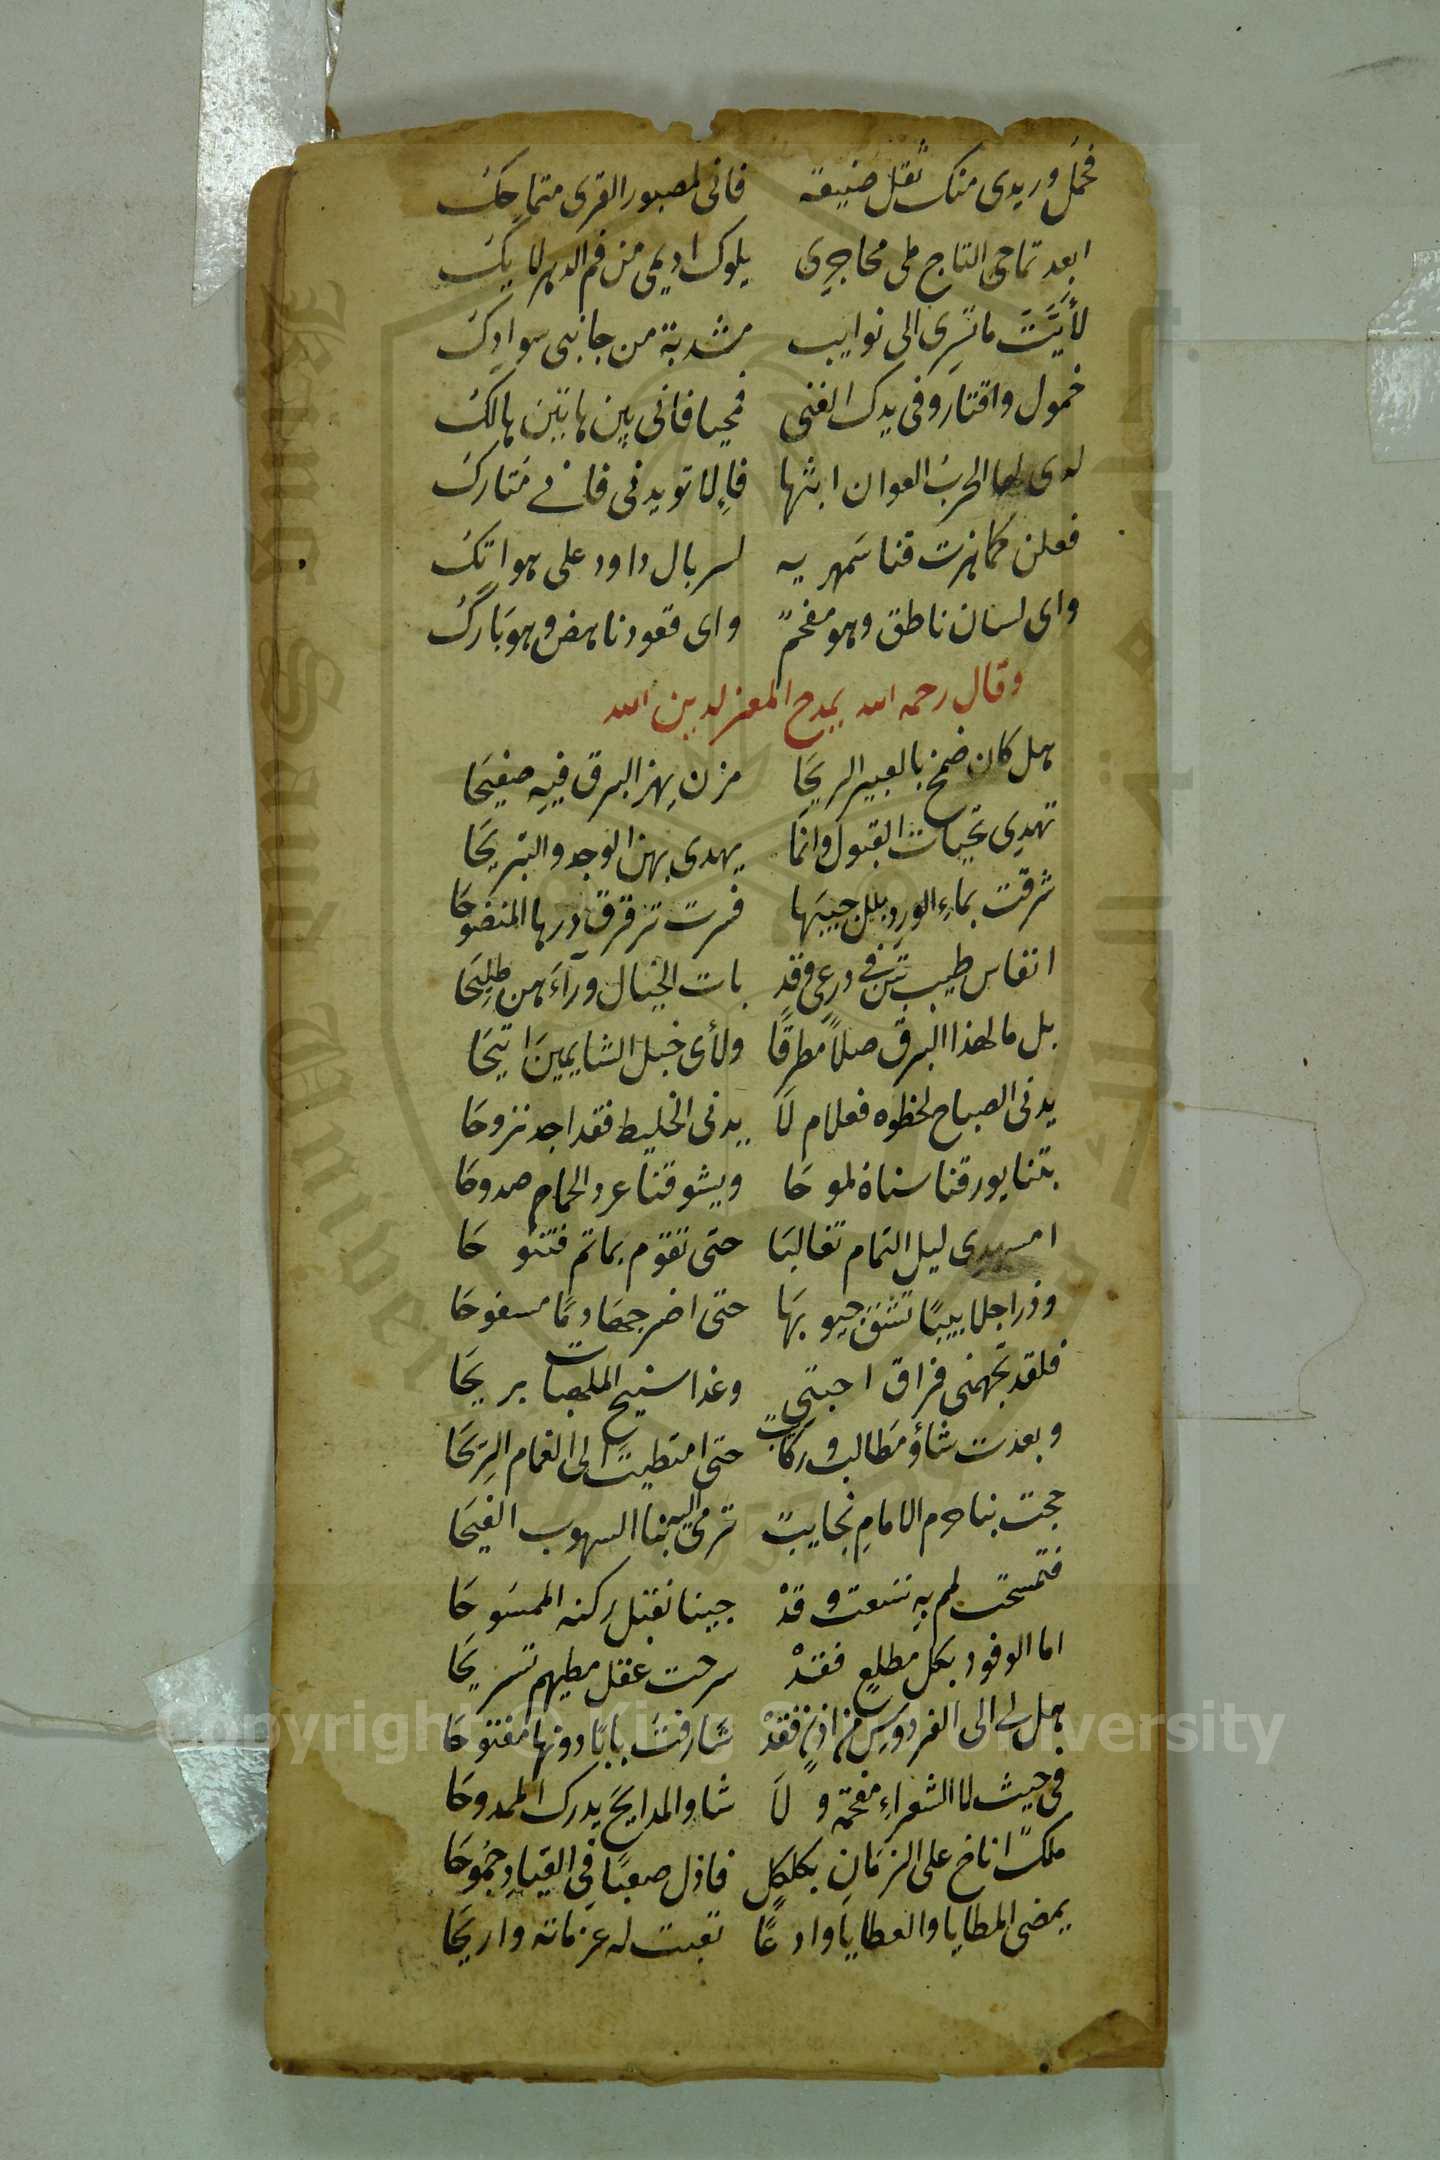 فحمل وريدى منك ثقل صنيعة فانى لمصبور القرى متماحك
ابعد تماحى التاج ملى محاجرى يلوك اديمى من فم الدهر لايك
لأيَّت ما تسرى الى نوايب مشدبة من جانبى سوادك
خمول واقتار وفى يدك الغنى فمحيا فانى بين هاتين هالك
لدى لها الحرب العوان ابثها فإلا تويدنى فانى متارك
فعلن كما هزت قنا سمهريه لسربال داود على هواتك
واى لسان ناطق وهو مفحم واى قعود ناهض وهو بارك
وقال رحمه الله يمدح المعز لدين الله
هل كان ضمخ بالعبير الريحا مزن يهز البرق فيه صفيحا
تهدى تحيات القبول وانما يهدى بهن الوجد والتبريحا
شرقت بماء الورد بلل جيبها فسرت ترقرق درها المنضوحا
انفاس طيب بتن فى درعى وقد بات الخيال ورآءهن طليحا
بل ما لهذا البرق صلا مطرقا ولأى خبل الشايمين اتيحا
يدنى الصباح لخطوه فعلام لا يدنى الخليط فقد اجد نزوحا
بتنا يورقنا سناه لموحا ويشوقنا غرد الحمام صدوحا
امسهدى ليل التمام تعالبا حتى تقوم بماتم فتنوحا
وذرا جلابيبا تشق جيوبها حتى اضرجها دما مسفوحا
فلقد تجهمنى فراق احبتى وغدا سنيح الملهيات بريحا
وبعدت شأو مطالب وركائب حتى امتطيت الى الغمام الريحا
حجت بنا حرم الامام نجايب ترمى اليه بنا السهوب الفيحا
فتمسحت لمم به شعث وقد جينا نقبل ركنه الممسوحا
اما الوفود بكل مطلع فقد سرحت عقل مطيهم تسريحا
هل لى الى الفردوس من اذن فقد شارفت بابا دونها مفتوحا
فى حيث لا الشعراء مفحمة ولا شاو المدايح يدرك الممدوحا
ملك اناخ على الزمان بكلكل فاذل صعبا فى القياد جموحا
يمضى المطايا والعطايا وادعا تعبت له عزماته واريحا
Copyright © King Saud University